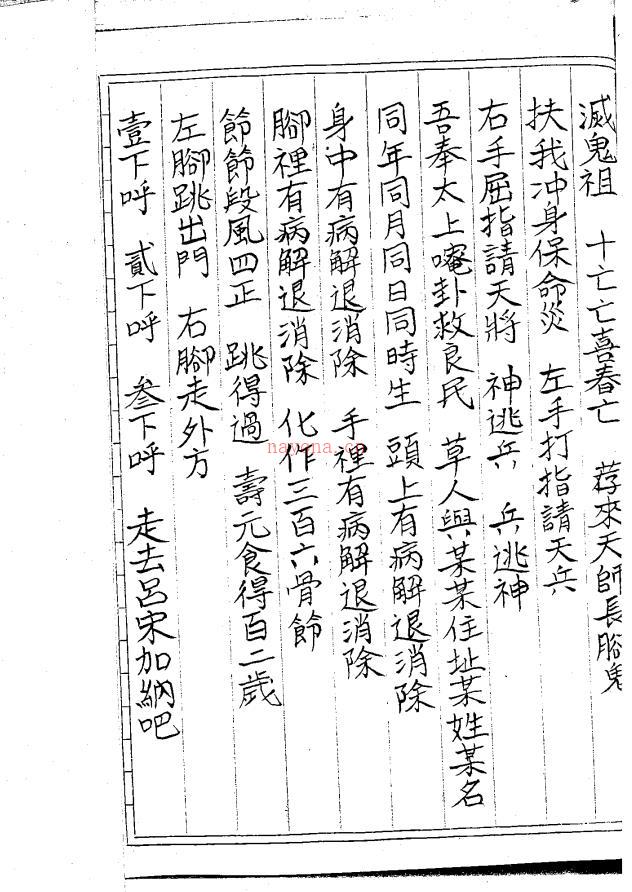 滅鬼祖　十亡亡喜春亡　荐來天師長腳鬼
扶我冲身保命災　左手打指請天兵
右手屈指請天將　神逃兵　兵逃神
吾奉太上唵卦救良民　草人與某某住址某姓某名
同年同月同日同時生　頭上有病解退消除
身中有病解退消除　手裡有病解退消除
腳裡有病解退消除　化作三百六骨節
節節段風四正　跳得過　壽元食得百二歲
左腳跳出門　右腳走外方
壹下呼　貳下呼　叁下呼　走去呂宋加納吧
nayona.cn